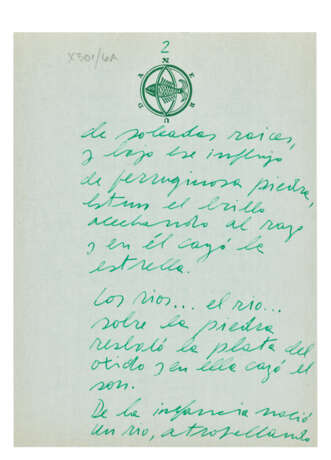 X301/6A
2
N E R U D A
de soleadas raices,
y bajo ese influjo
de ferruginosa piedra,
estuvo el brillo
acechando al rayo
y en él cayó la
estrella.
Los rios... el rio...
sobre la piedra
resbaló la plata del
oxido y en ella cayó el
son.
De la infancia nació
un rio, atropellando